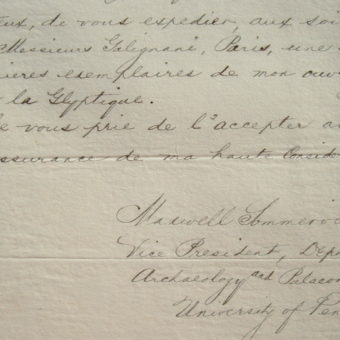 eux, de vous expedier, aux soi
Messieurs Galignani, Paris, une
ières exemplaires de mon ouv
la Glyptique.
e vous prie de l'accepter a
ssurance de ma haute Consid
Maxwell Sommervi
Vice President, Depa
Archaeology and Palaeon
University of Pen